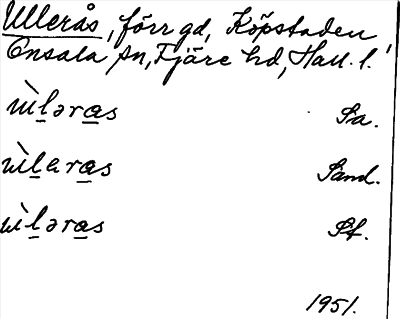 Ullerås, förr gd, Köpstaden
Onsala sn, Fjäre hd, Hall. l.
ù̀l̲əra̲s Sa.
ù̀l̲era̲s Sand.
ù̀l̲əra̲s St.
1951.